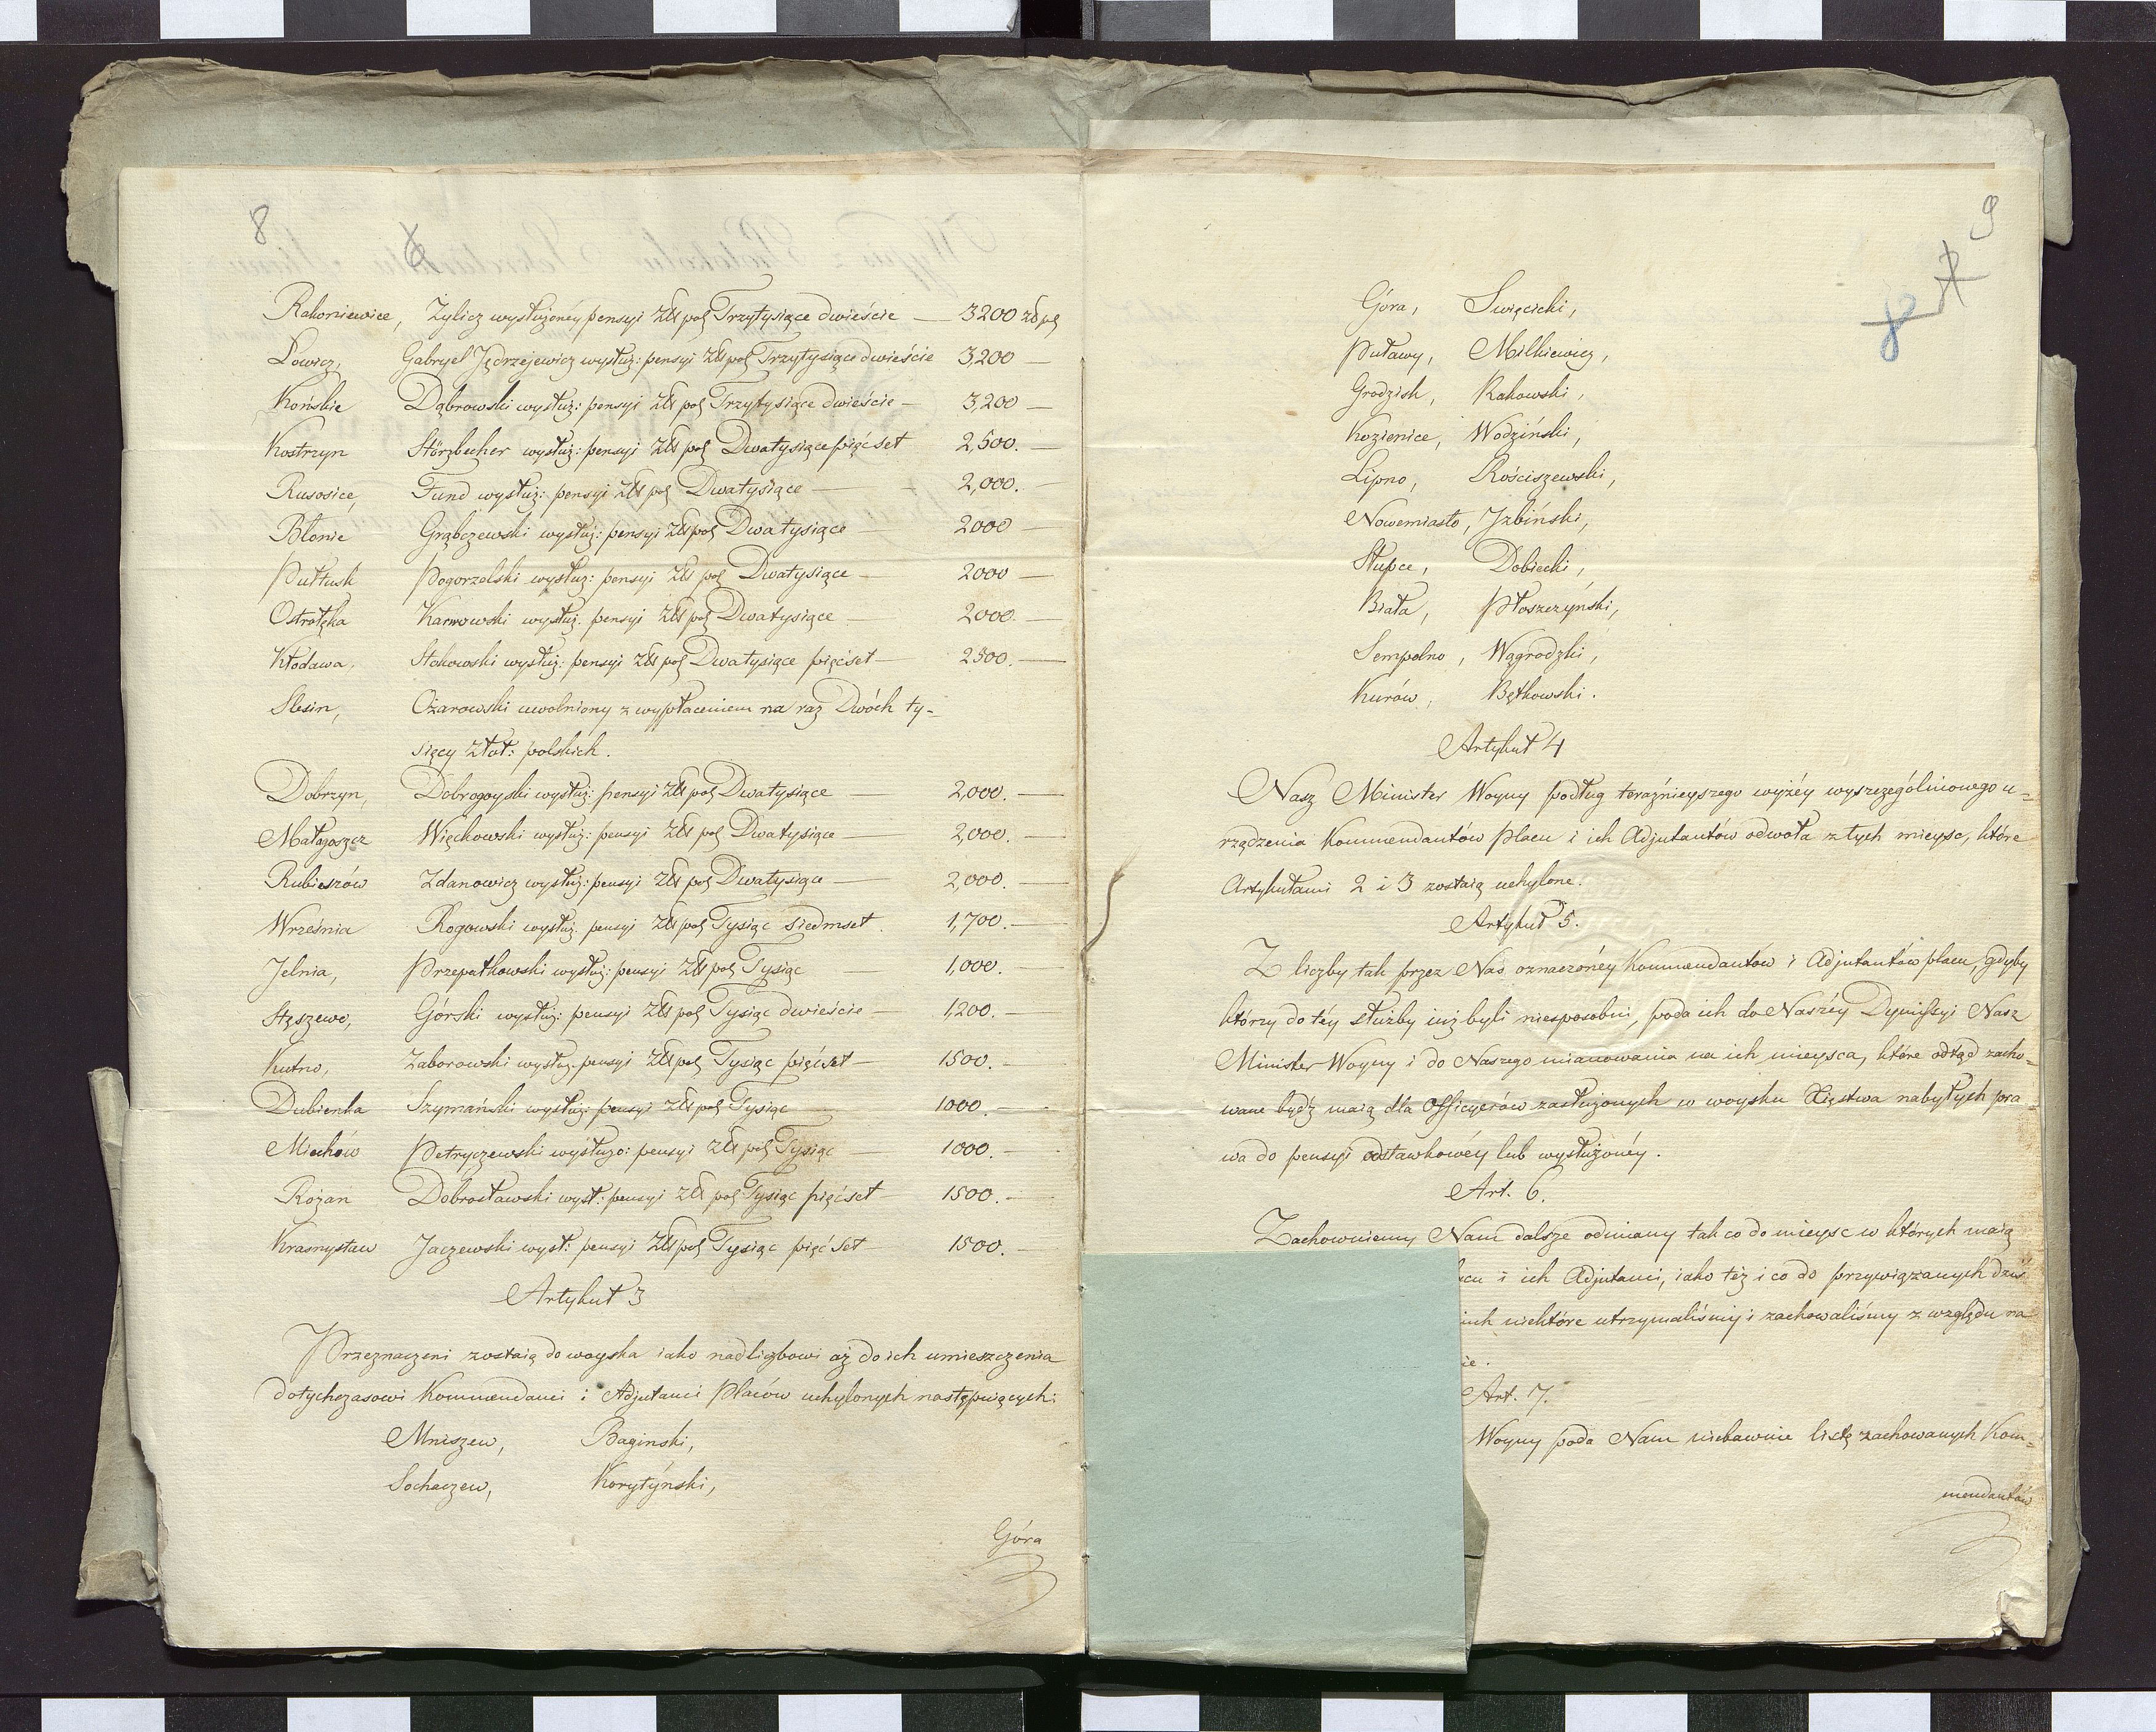 8
Rakoniewice, Zylicz wysłużonéy pensyi Złł pol Trzytysiące dwieście — 3200 zł pol
Łowicz, Gabryel Jędrzejewicz wysłuż: pensyi Złł pol Trzytysiące dwieście 3200 —
Końskie Dąbrowski wysłuż: pensyi Złł pol Trzytysiące dwieście — 3,200 —
Kostrzyn Störzbecher wysłuż: pensyi Złł pol Dwatysiące pięćset 2,500. —
Rusosice, Fund wysłuż: pensyi Złł pol Dwatysiące — 2,000. —
Błonie Grąbczewski wysłuż: pensyi Złł pol Dwatysiące — 2000 —
Pułtusk Pogorzelski wysłuż: pensyi Złł pol Dwatysiące — 2000 —
Ostrołęka Karwowski wysłuż: pensyi Złł pol Dwatysiące — 2000. —
Kłodawa, Stokowski wysłuż: pensyi Złł pol Dwatysiące pięćset — 2500. —
Slesin, Ożarowski uwolniony z wypłaceniem na raz Dwóch ty-
sięcy złot: polskich.
Dobrzyn, Dobrogoyski wysłuż: pensyi Złł pol Dwatysiące — 2,000. —
Małagoszcz Więckowski wysłuż: pensyi Złł pol Dwatysiące — 2,000. —
Rubieszów Zdanowicz wysłuż: pensyi Złł pol Dwatysiące — 2,000. —
Września Rogowski wysłuż. pensyi Złł pol Tysiąc siedmset. 1,700. —
Jelnia, Przepałkowski wysłuż: pensyi Złł pol Tysiąc — 1,000. —
Stęszewo, Górski wysłuż: pensyi Złł pol Tysiąc dwieście — 1,200. —
Kutno, Zaborowski wysłuż. pensyi Złł pol Tysiąc pięćset — 1500. —
Dubienka Szymański wysłuż: pensyi Złł pol Tysiąc — 1000. —
Miechów Petryczewski wysłużo: pensyi Złł pol Tysiąc — 1000. —
Rożan Dobrosławski wysł: pensyi Złł pol Tysiąc pięćset — 1500. —
Krasnystaw Jaczewski wysł: pensyi Złł pol Tysiąc pięćset — 1500. —
Artykuł 3
Przeznaczeni zostaią do woyska iako nadliczbowi aż do ich umieszczenia
dotychczasowi Kommendanci i Adjutanci Placów uchylonych następuiących:
Mniszew, Baginski,
Sochaczew, Korytyński,
Góra
9
Góra, Swięcicki,
Puławy, Milkiewicz,
Grodzisk, Rakowski,
Kozienice, Wodziński,
Lipno, Rościszewski,
Nowemiasto, Jzbiński,
Słupce, Dobiecki,
Biała, Płoszczyński,
Sempolno, Wągrodzki,
Kurów, Bętkowski.
Artykuł 4
Nasz Minister Woyny podług teraźnieyszego wyżéy wyszczególnionego u-
rządzenia Kommendantów placu i ich Adjutantów odwoła z tych mieysc, które
Artykułami 2 i 3 zostaią uchylone.
Artykuł 5.
Z liczby tak przez Nas oznaczonéy Kommendantow i Adjutantów placu, gdyby
którzy do téy służby iuż byli niesposobni, poda ich do Naszéy Dymissyi Nasz
Minister Woyny i do Naszego mianowania na ich mieysca, które odtąd zacho-
wane bydź maią dla Officyerów zasłużonych w woysku Xięstwa nabyłych pra-
wa do pensyi odstawkowéy lub wysłużonéy.
Art. 6.
Zachowuiemy Nam dalsze odmiany tak co do mieysc w których maią
i ich Adjutanci, iako téż i co do przywiązanych dziś
niektóre utrzymaliśmy i zachowaliśmy z względu na
Art. 7.
Woyny poda Nam niebawnie listę zachowanych Kom-
mendantów